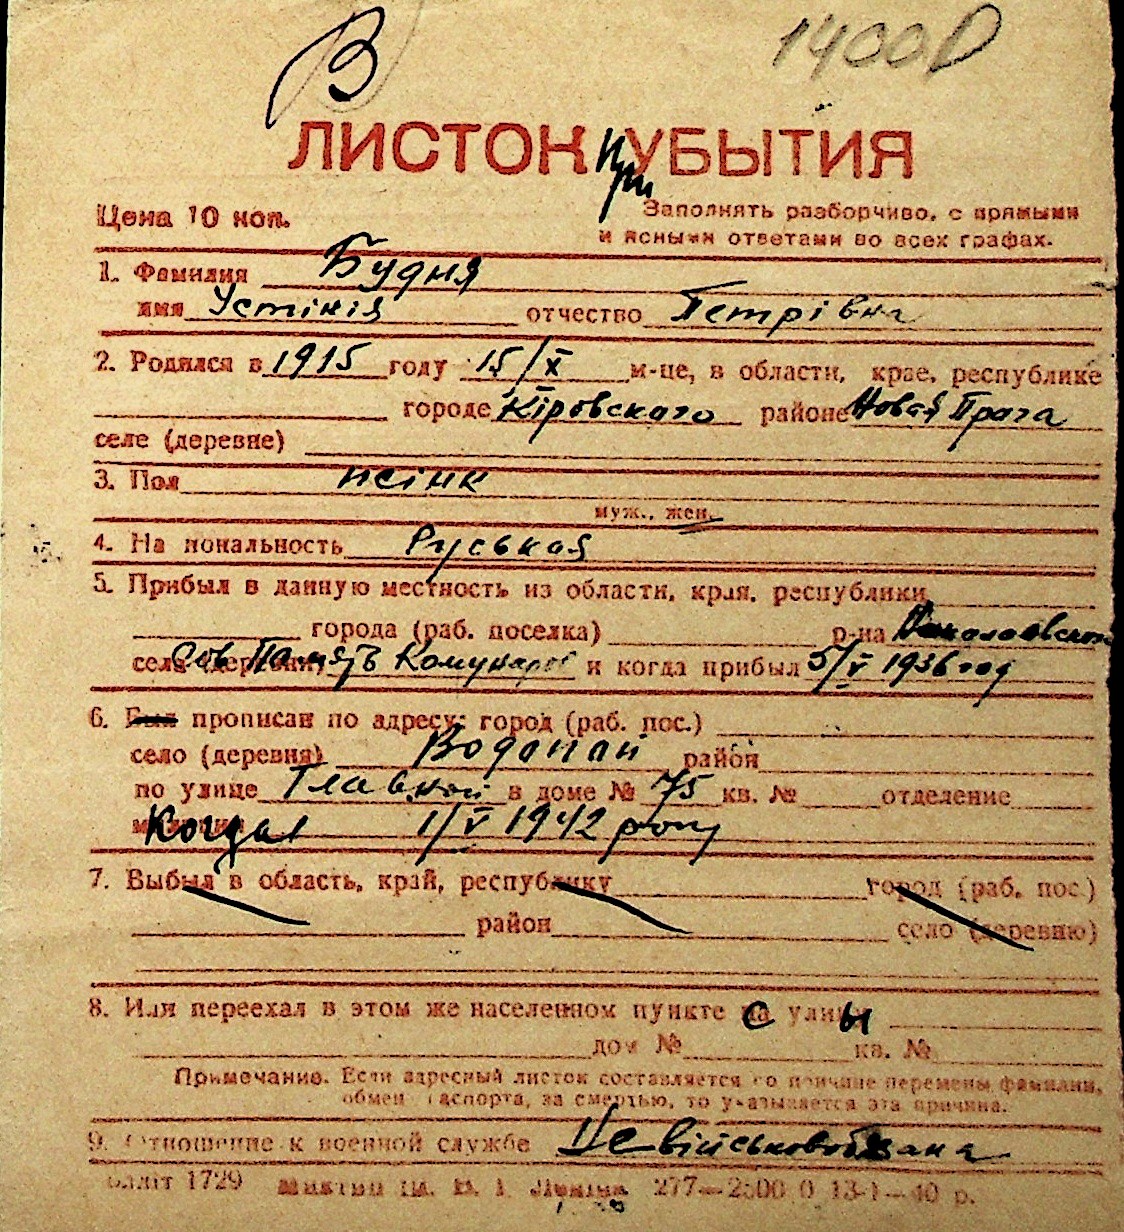 В
1400
ЛИСТОК При УБЫТИЯ
Цена 10 коп.
Заполнять разборчиво, с прямыми
и ясными ответами во всех графах.
1. Фамилия Будня
имя Устінія отчество Петрівна
2. Родился в 1915 году 15/X м-це, в области, крае, республике
городе Кіровского районе Новая Прага
селе (деревне)
3. Пол жінк
муж., жен.
4. На иональность Руськая
5. Прибыл в данную местность из области, края, республики
города (раб. поселка) р-на
село (деревни) Памяъ Комунарів и когда прибыл 5/V 1936 год
6. Был прописан по адресу: город (раб. пос.)
село (деревня) Водапай район
по улице Главной в доме № 75 кв. № отделение
Когда 1/V 1942 року
7. Выбыл в область, край, республику город (раб. пос.)
район село (деревню)
8. Или переехал в этом же населенном пункте с улиы
дом № кв. №
Примечание. Если адресный листок составляется по причине перемены фамилии,
обмен паспорта, за смертью, то указывается эта причина.
9. Отношение к военной службе Невійськовобязана
1729 277—2500 0 13-1—40 р.